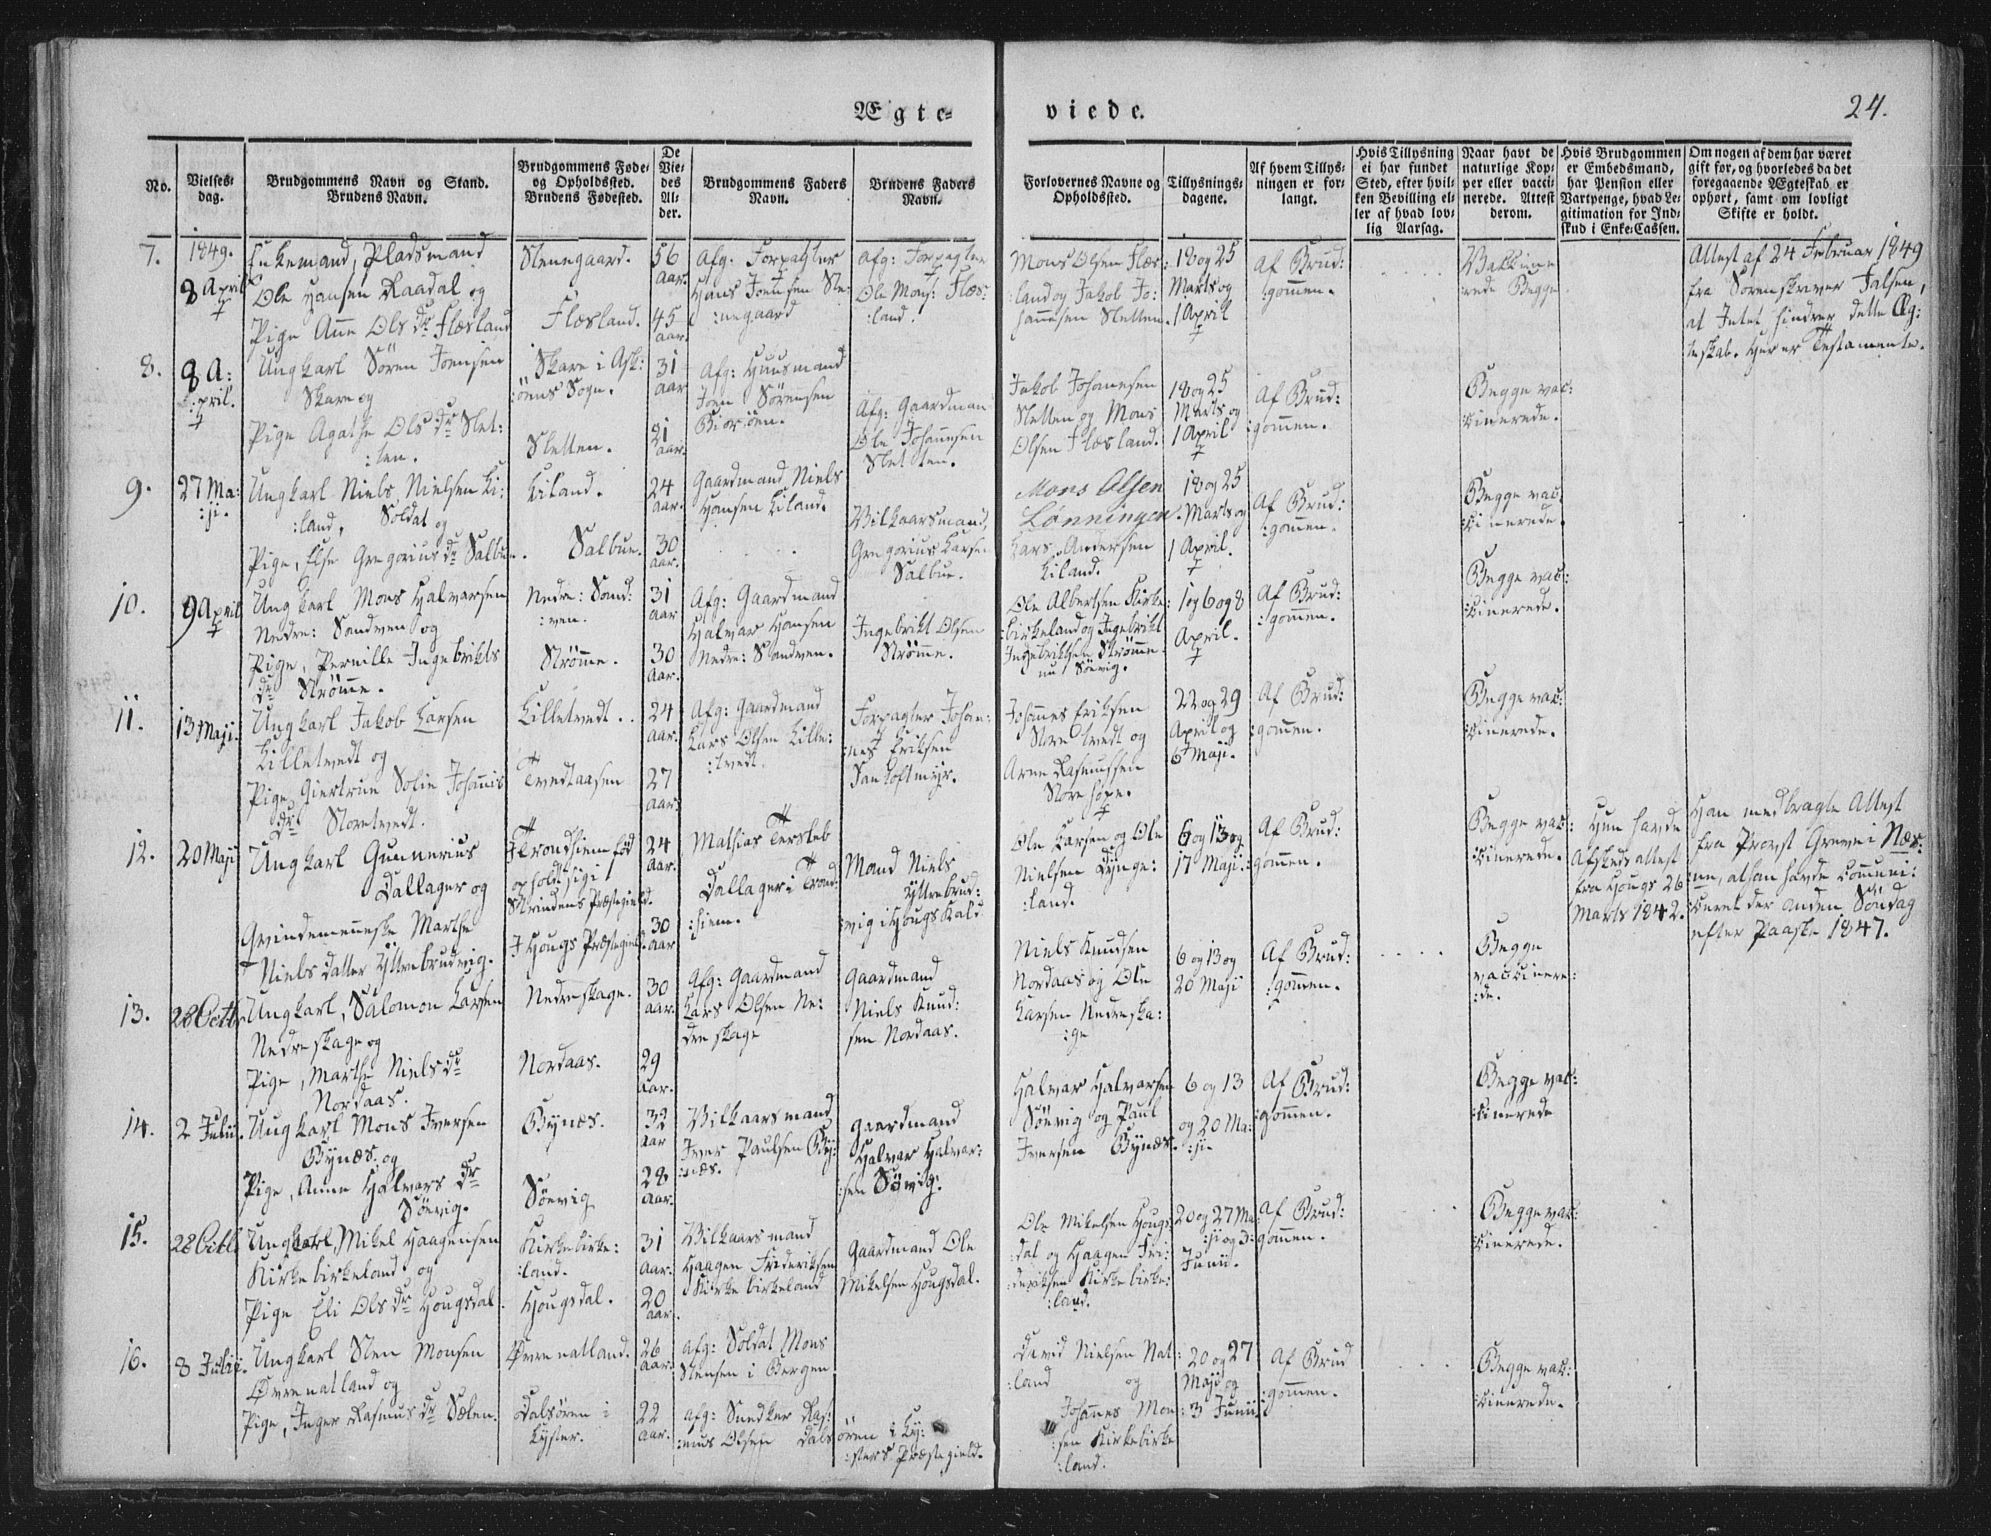 Ægte-
viede.
24.
No.
Vielses-
dag.
Brudgommens Navn og Stand.
Brudens Navn.
Brudgommens Føde-
og Opholdssted.
Brudens Fødested.
De
Vie-
des
Al-
der.
Brudgommens Faders
Navn.
Brudens Faders
Navn.
Forlovernes Navne og
Opholdssted.
Tillysnings-
dagene.
Af hvem Tillys-
ningen er for-
langt.
Hvis Tillysning
ei har fundet
Sted, efter hvil-
ken Bevilling el-
ler af hvad lov-
lig Aarsag.
Naar havt de
naturlige Kop-
per eller vacci-
nerede. Attest
derom.
Hvis Brudgommen
er Embedsmand,
har Pension eller
Vartpenge, hvad Le-
gitimation for Ind-
skud i Enke-Cassen.
Om nogen af dem har været
gift før, og hvorledes da det
foregaaende Ægteskab er
ophørt, samt om lovligt
Skifte er holdt.
7.
1849.
8 April
Enkemand, Pladsmand
Ole Hansen Raadal og
Pige Ane Ols dr Flæsland
Stenegaard.
Flæsland.
56
Aar.
45
Aar.
Afg. Forpagter
Hans Jensen Ste-
:negaard
Afg: Forpagter
Ole Mons: Flæs:
:land.
Mons Olsen Flæs:
:land og Jakob Jo:
hannesen Sletten.
18 og 25
Marts og
1 April
Af Brud:
:gommen.
Vakkine
:rede Begge
Attest af 24 Februar 1849
fra Sorenskriver Falsen,
at Intet hindrer dette Æg:
teskab. Her er Testamente.
8.
8 A:
:pril.
Ungkarl Sören Joensen
Skare og
Pige Agathe Ols dr Slet:
:ten.
Skare i Ask:
:öens Sogn.
Sletten.
31
Aar
21
Aar.
Afg: Huusmand
Joen Sörensen
Biorøen.
Afg: Gaardman
Ole Johannesen
Sletten.
Jakob Johanesen
Sletten og Mons
Olsen Flæsland.
18 og 25
Marts og
1 April
Af Brud:
gommen.
Begge vac:
:cinerede.
9.
27 Ma:
:ji.
Ungkarl Niels Nielsen Li:
:land, Soldat og
Pige, Else Gregorius dr Salbue.
Liland.
Salbue.
24
Aar.
30
Aar.
Gaardmand Niels
Hansen Liland.
Vilkaarsmand,
Gregorius Larsen
Salbue.
Mons Olsen
Lønningen.
Lars Andersen
Liland.
18 og 25
Marts og
1 April.
Af Brud:
:gommen.
Begge vac
:cinerede.
10.
9 April
Ungkarl Mons Halvorsen
Nedre: Sandven og
Pige, Pernille Ingebrikts
dr Strömme.
Nedre: Sand:
:ven.
Strömme.
31
Aar
30
Aar.
Afg: Gaardmand
Halvor Hansen
Nedre: Sandven.
Ingebrikt Olsen
Strömme.
Ole Albertsen Kirke:
:birkeland og Ingebrikt
Ingebriktsen Strömme
nu Söevig.
1 og 6 og 8
April.
Af Brud:
:gommen.
Begge vac:
:cinerede.
11.
13 Maji.
Ungkarl Jakob Larsen
Lilletvedt og
Pige Giertrue Solie Johannis
dr Storetvedt.
Lilletvedt.
Tvedtaasen
24
Aar.
27
Aar.
Afg: Gaardmand
Lars Olsen Lille:
:tvedt.
Forpagter Johan:
:nes Eriksen
Sankoftmyr.
Johannes Eriksen
Store tvedt og
Arne Rasmussen
Store hope.
22 og 29
April og
6 Maji.
Af Brud:
:gommen.
Begge vac:
:cinerede.
12.
20 Maji
Ungkarl Gunnerius
Dallager og
Qvindemenneske Marthe
Nielsdatter Yttrebrudvig.
Trondhiem fød
opholdt sig i
Strindens Præstegield.
I Hougs Præstegield.
24
Aar.
30
Aar
Mathias Tersleb
Dallager i Trond:
:hiem.
Mand Niels
Yttrebrud:
vig i Hougs Kald
Ole Larsen og Ole
Nielsen Lynge:
:land.
6 og 13 og
17 Maji.
Af Brud:
:gommen.
Begge vac:
:cinerede.
Hun havde
Afskedsattest
fra Hougs 26
Marts 1842.
Han medbragte Attest
fra Provst Greve i Næs:
:ne, at han havde communi:
:ceret der anden Söndag
efter Paaske 1847.
13.
28 Octb
Ungkarl, Salomon Larsen
Nedreskage og
Pige, Marthe Niels dr
Nordaas.
Nedreskage.
Nordaas.
30
Aar.
29
Aar.
Afg: Gaardmand
Lars Olsen Ne:
dreskage
Gaardmand
Niels Knud:
sen Nordaas.
Niels Knudsen
Nordaas og Ole
Larsen Nedreska:
:ge
6 og 13 og
20 Maji
Af Brud:
:gommen.
Begge
vaccinere:
:de.
14.
2 Julii.
Ungkarl Mons Iversen
Bynæs. og
Pige, Anne Halvors dr
Söevig.
Bynæs.
Söevig
32
Aar
28
Aar.
Vilkaarsmand
Iver Paulsen By:
:næs.
Gaardmand
Halvor Halvor:
:sen Söevig.
Halvor Halvorsen
Söevig og Paul
Iversen Bynæs.
6 og 13
og 20 Ma:
:ji
Af Brud:
:gommen.
Begge vac:
:cinerede
15.
28 Octb.
Ungkarl, Mikel Haagensen
Kirkebirkeland og
Pige Eli Ols dr Hougsdal
Kirkebirke:
:land.
Hougsdal.
31
Aar.
20
Aar.
Vilkaarsmand
Haagen Frideriksen
Kirkebirkeland
Gaardmand Ole
Mikelsen Hougsdal.
Ole Mikelsen Hougs:
:dal og Haagen Fri:
:deriksen Kirkebirke:
:land.
20 og 27 Ma:
:ji og 3
Junii.
Af Brud:
gommen.
Begge vac:
:cinerede.
16.
8 Julii.
Ungkarl Sten Monsen
Øvrenatland og
Pige, Inger Rasmus dr Sælen.
Øvrenatland.
Dalsören i
Lyster.
26
Aar.
22
Aar.
Afg: Soldat Mons
Stensen i Bergen
Afg: Snedker Ras:
:mus Olsen Dals
ören i Ly:
:sters Præstegield.
David Nielsen Nat:
:land og
Johannes Mon
:sen Kirkebirke
:land.
20 og 27
Maji og
3 Junii
Af Brud
:gommen.
Begge vac:
:cinerede.